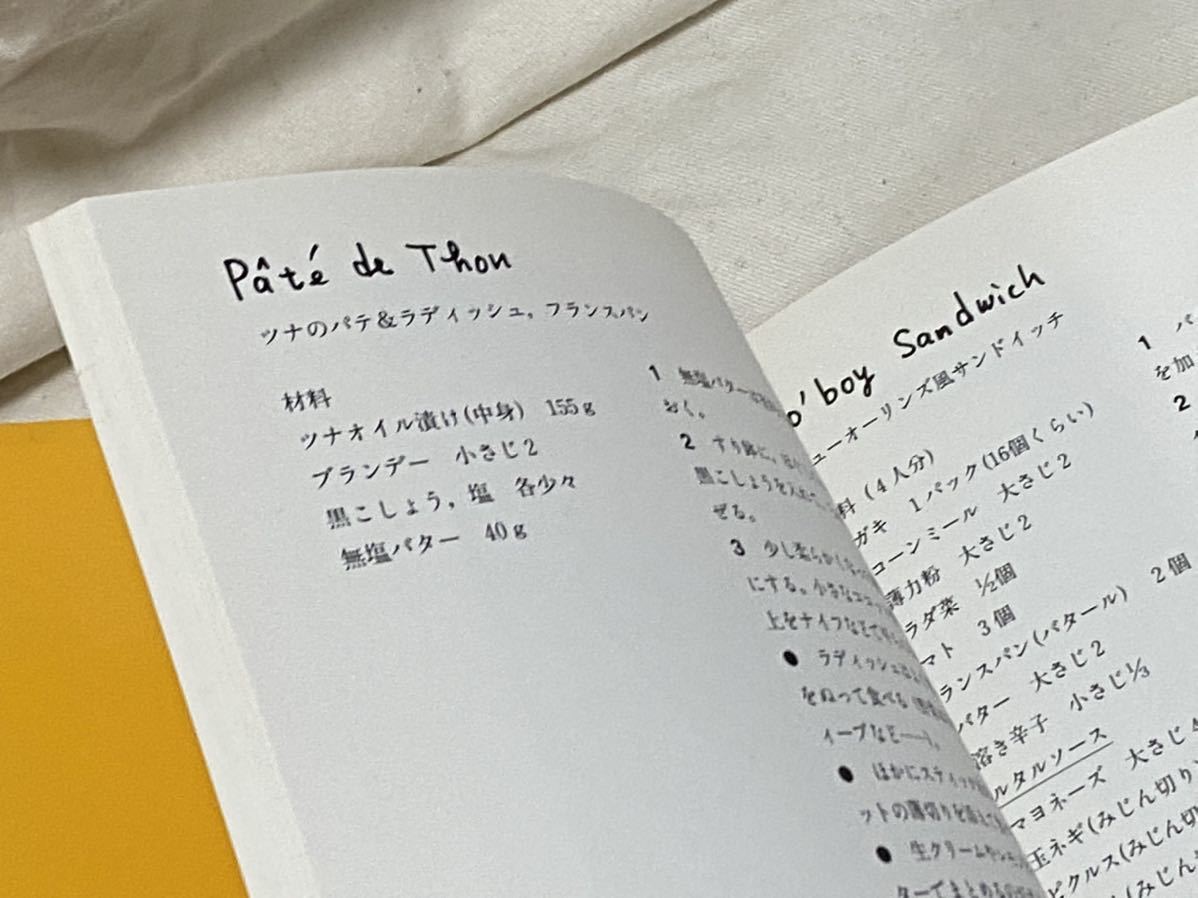 Pâté de Thon
ツナのパテ&ラディッシュ，フランスパン
材料
ツナオイル漬け(中身) 155g
ブランデー 小さじ2
黒こしょう，塩 各少々
無塩バター 40g
1 無塩バター
おく。
2 すり鉢に、
黒こしょうを入れて
ぜる。
3 少し柔らかくなっ
にする。小さなココッ
上をナイフなどで
● ラディッシュ
をぬって食べる
ィーブなど──)。
● ほかにスティック
ットの薄切りを添えて
● 生クリームや
ターでまとめるの
o'boy Sandwich
ューオーリンズ風サンドイッチ
料 (4人分)
ガキ 1パック(16個くらい)
コーンミール 大さじ2
薄力粉 大さじ2
ラダ菜 ½個
マト 3個
ランスパン(バタール) 2個
バター 大さじ2
溶き辛子 小さじ⅓
ルタルソース
マヨネーズ 大さじ4
玉ネギ(みじん切り)
ピクルス(みじん切
(みじん
1 パ
を加
2